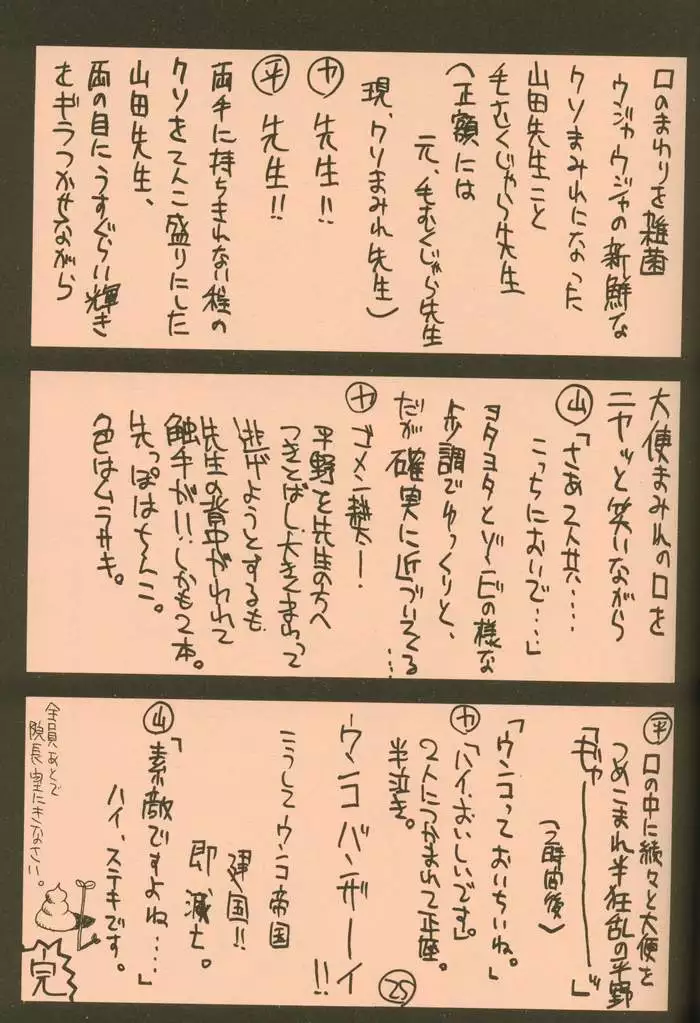 口のまわりを雑菌
ウジャウジャの新鮮な
クソまみれになった
山田先生こと
毛むくじゃら先生
(正確には
元、毛むくじゃら先生
現、クソまみれ先生)
カ 先生!!
平 先生!!
両手に持ちきれない程の
クソをてんこ盛りにした
山田先生、
両の目にうすぐらい輝き
をギラつかせながら
大便まみれの口を
ニヤッと笑いながら
山「さあ2人共‥‥
こっちにおいで‥‥」
ヨタヨタとゾンビの様な
歩調でゆっくりと、
だが確実に近づいてくる‥‥
カ ゴメン
平野を先生の方へ
つきとばし大きくまわって
逃げようとするも
先生の背中がわれて
触手が!!しかも2本。
先っぽはちんこ。
色はムラサキ。
平 口の中に続々と大便を
つめこまれ半狂乱の平野
「ギャーーーー」
(2時間後)
「ウンコっておいちいね。」
カ「ハイ、おいしいです」。
2人につかまれて正座。
半泣き。
ウンコバンザーイ!!
こうしてウンコ帝国
建国!!
即滅亡。
山「素敵ですよね‥‥」
ハイ、ステキです。
25
全員あとで
院長室にきなさい。
完